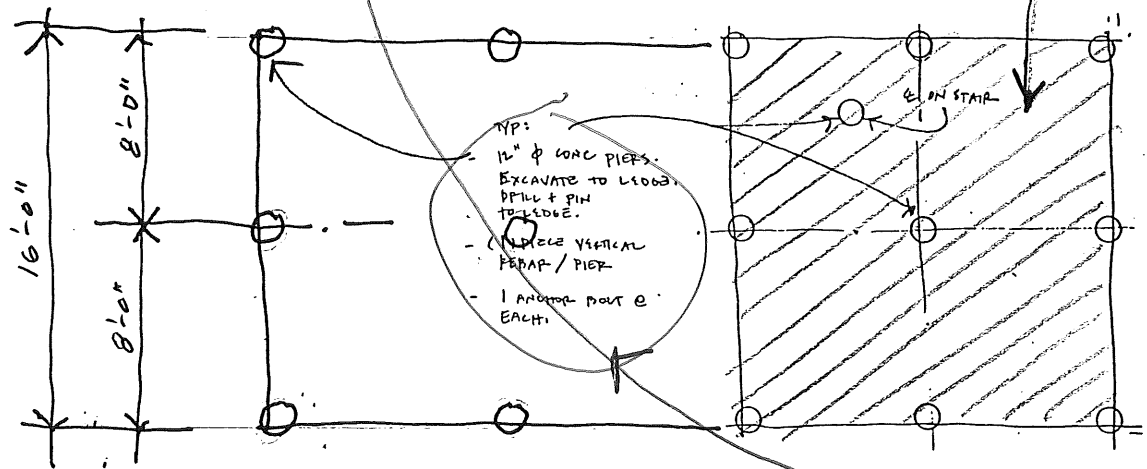 16'-0"
8'-0"
8'-0"
TYP:
- 12" ϕ CONC PIERS.
EXCAVATE TO LEDGE.
DRILL + PIN
TO LEDGE.
- VERTICAL
REBAR / PIER
- 1 ANCHOR BOLT @
EACH.
℄ ON STAIR